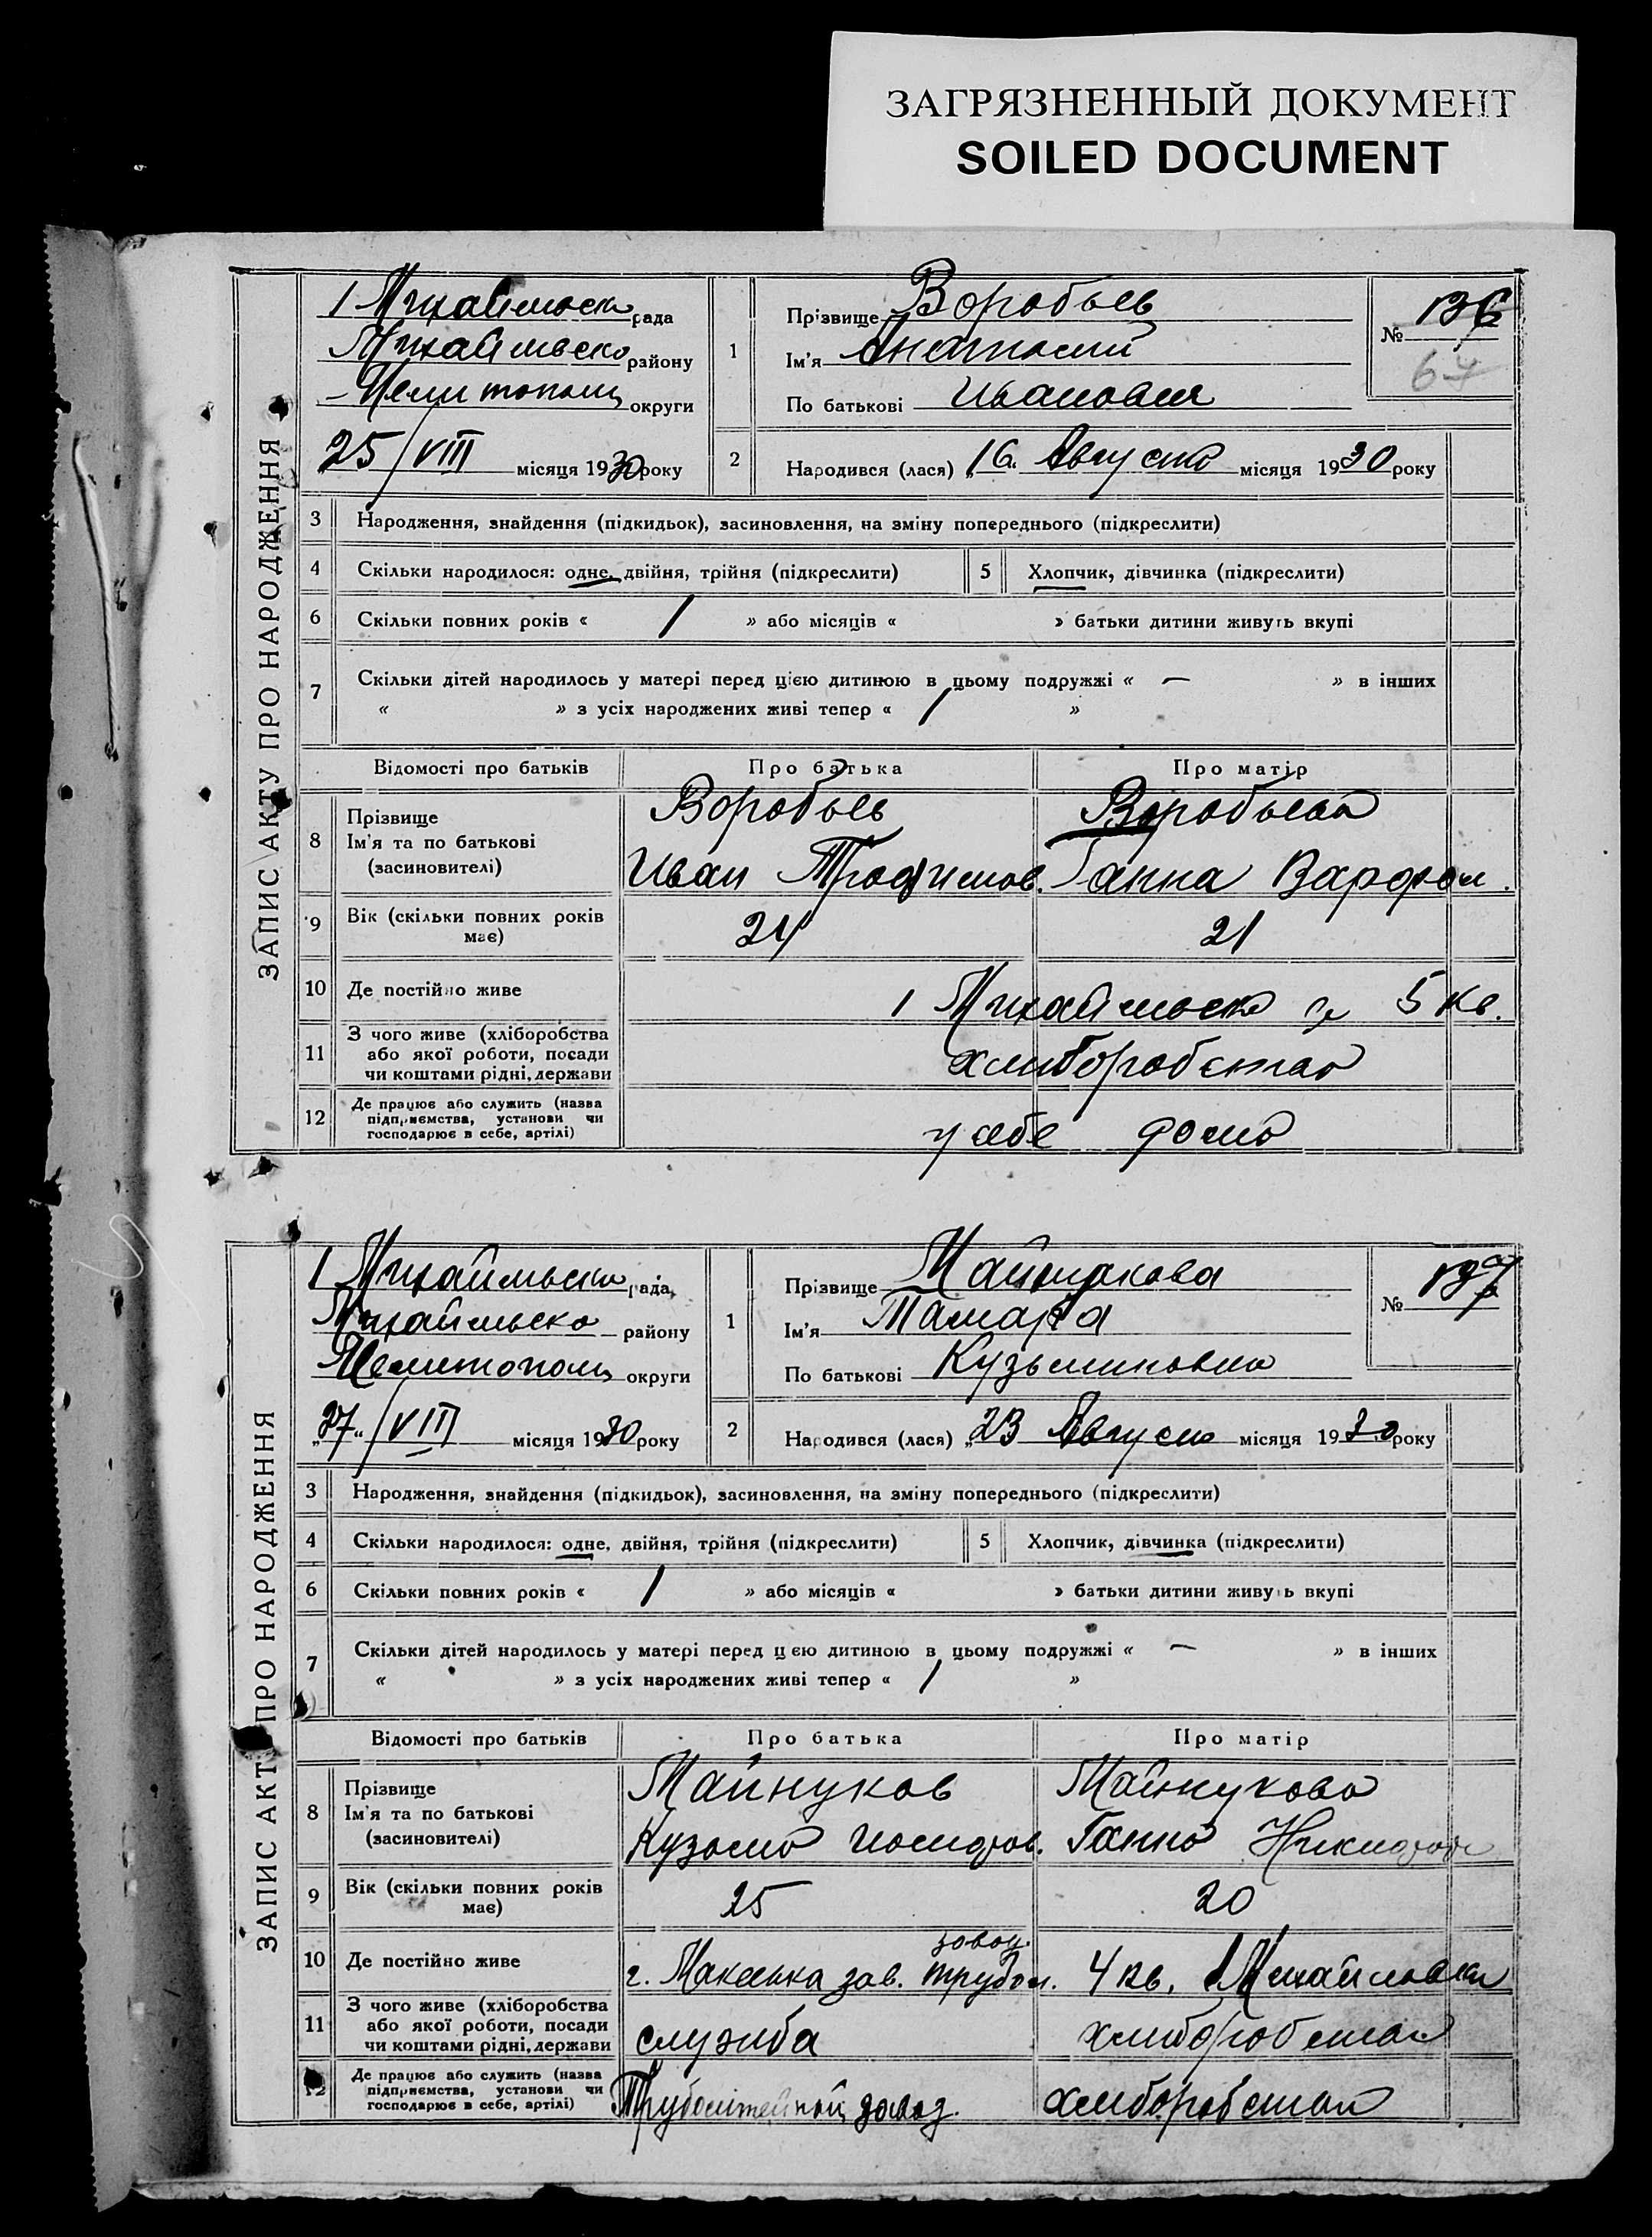 ЗАГРЯЗНЕННЫЙ ДОКУМЕНТ
SOILED DOCUMENT
ЗАПИС АКТУ ПРО НАРОДЖЕННЯ
1 Михайльська рада
Михайльсько району
Мелитополь округи
25/VIII місяця 1930 року
1
Прізвище Воробьев
Ім'я Анатолий
По батькові Иванович
№ 136
64
2
Народився (лася) „16 Августа місяця 1930 року
3 Народження, знайдення (підкидьок), засиновлення, на зміну попереднього (підкреслити)
4 Скільки народилося: одне, двійня, трійня (підкреслити) 5 Хлопчик, дівчинка (підкреслити)
6 Скільки повних років « 1 » або місяців « » батьки дитини живуть вкупі
7 Скільки дітей народилось у матері перед цією дитиною в цьому подружжі « — » в інших
« » з усіх народжених живі тепер « 1 »
Відомості про батьків Про батька Про матір
8 Прізвище Ім'я та по батькові (засновителі)
Воробьев Воробьева
Иван Трофимов. Ганна Варфол.
9 Вік (скільки повних років має) 24 21
10 Де постійно живе 1 Михайльська 5 кв.
11 З чого живе (хліборобства або якої роботи, посади чи коштами рідні, держави хлиборобства
12 Де працює або служить (назва підприємства, установи чи господарює в себе, артілі) у себе дома
ЗАПИС АКТ ПРО НАРОДЖЕННЯ
1 Михайльська рада
Михайльсько району
Мелитополь округи
„27“/VIII місяця 1930 року
1
Прізвище Майнукова
Ім'я Тамара
По батькові Кузьминовна
№ 137
2
Народився (лася) „23 Августа місяця 1930 року
3 Народження, знайдення (підкидьок), засиновлення, на зміну попереднього (підкреслити)
4 Скільки народилося: одне, двійня, трійня (підкреслити) 5 Хлопчик, дівчинка (підкреслити)
6 Скільки повних років « 1 » або місяців « » батьки дитини живуть вкупі
7 Скільки дітей народилось у матері перед цією дитиною в цьому подружжі « — » в інших
« » з усіх народжених живі тепер « 1 »
Відомості про батьків Про батька Про матір
8 Прізвище Ім'я та по батькові (засиновителі)
Майнуков Майнукова
Кузьма Ганна Никифор
9 Вік (скільки повних років має) 25 20
10 Де постійно живе г. Макеевка зав. трубол. завод. 4 кв. 1 Михайловка
11 З чого живе (хліборобства або якої роботи, посади чи коштами рідні, держави служба хлиборобства
12 Де працює або служить (назва підприємства, установи чи господарює в себе, артілі) Труболитейный завод. хлиборобства